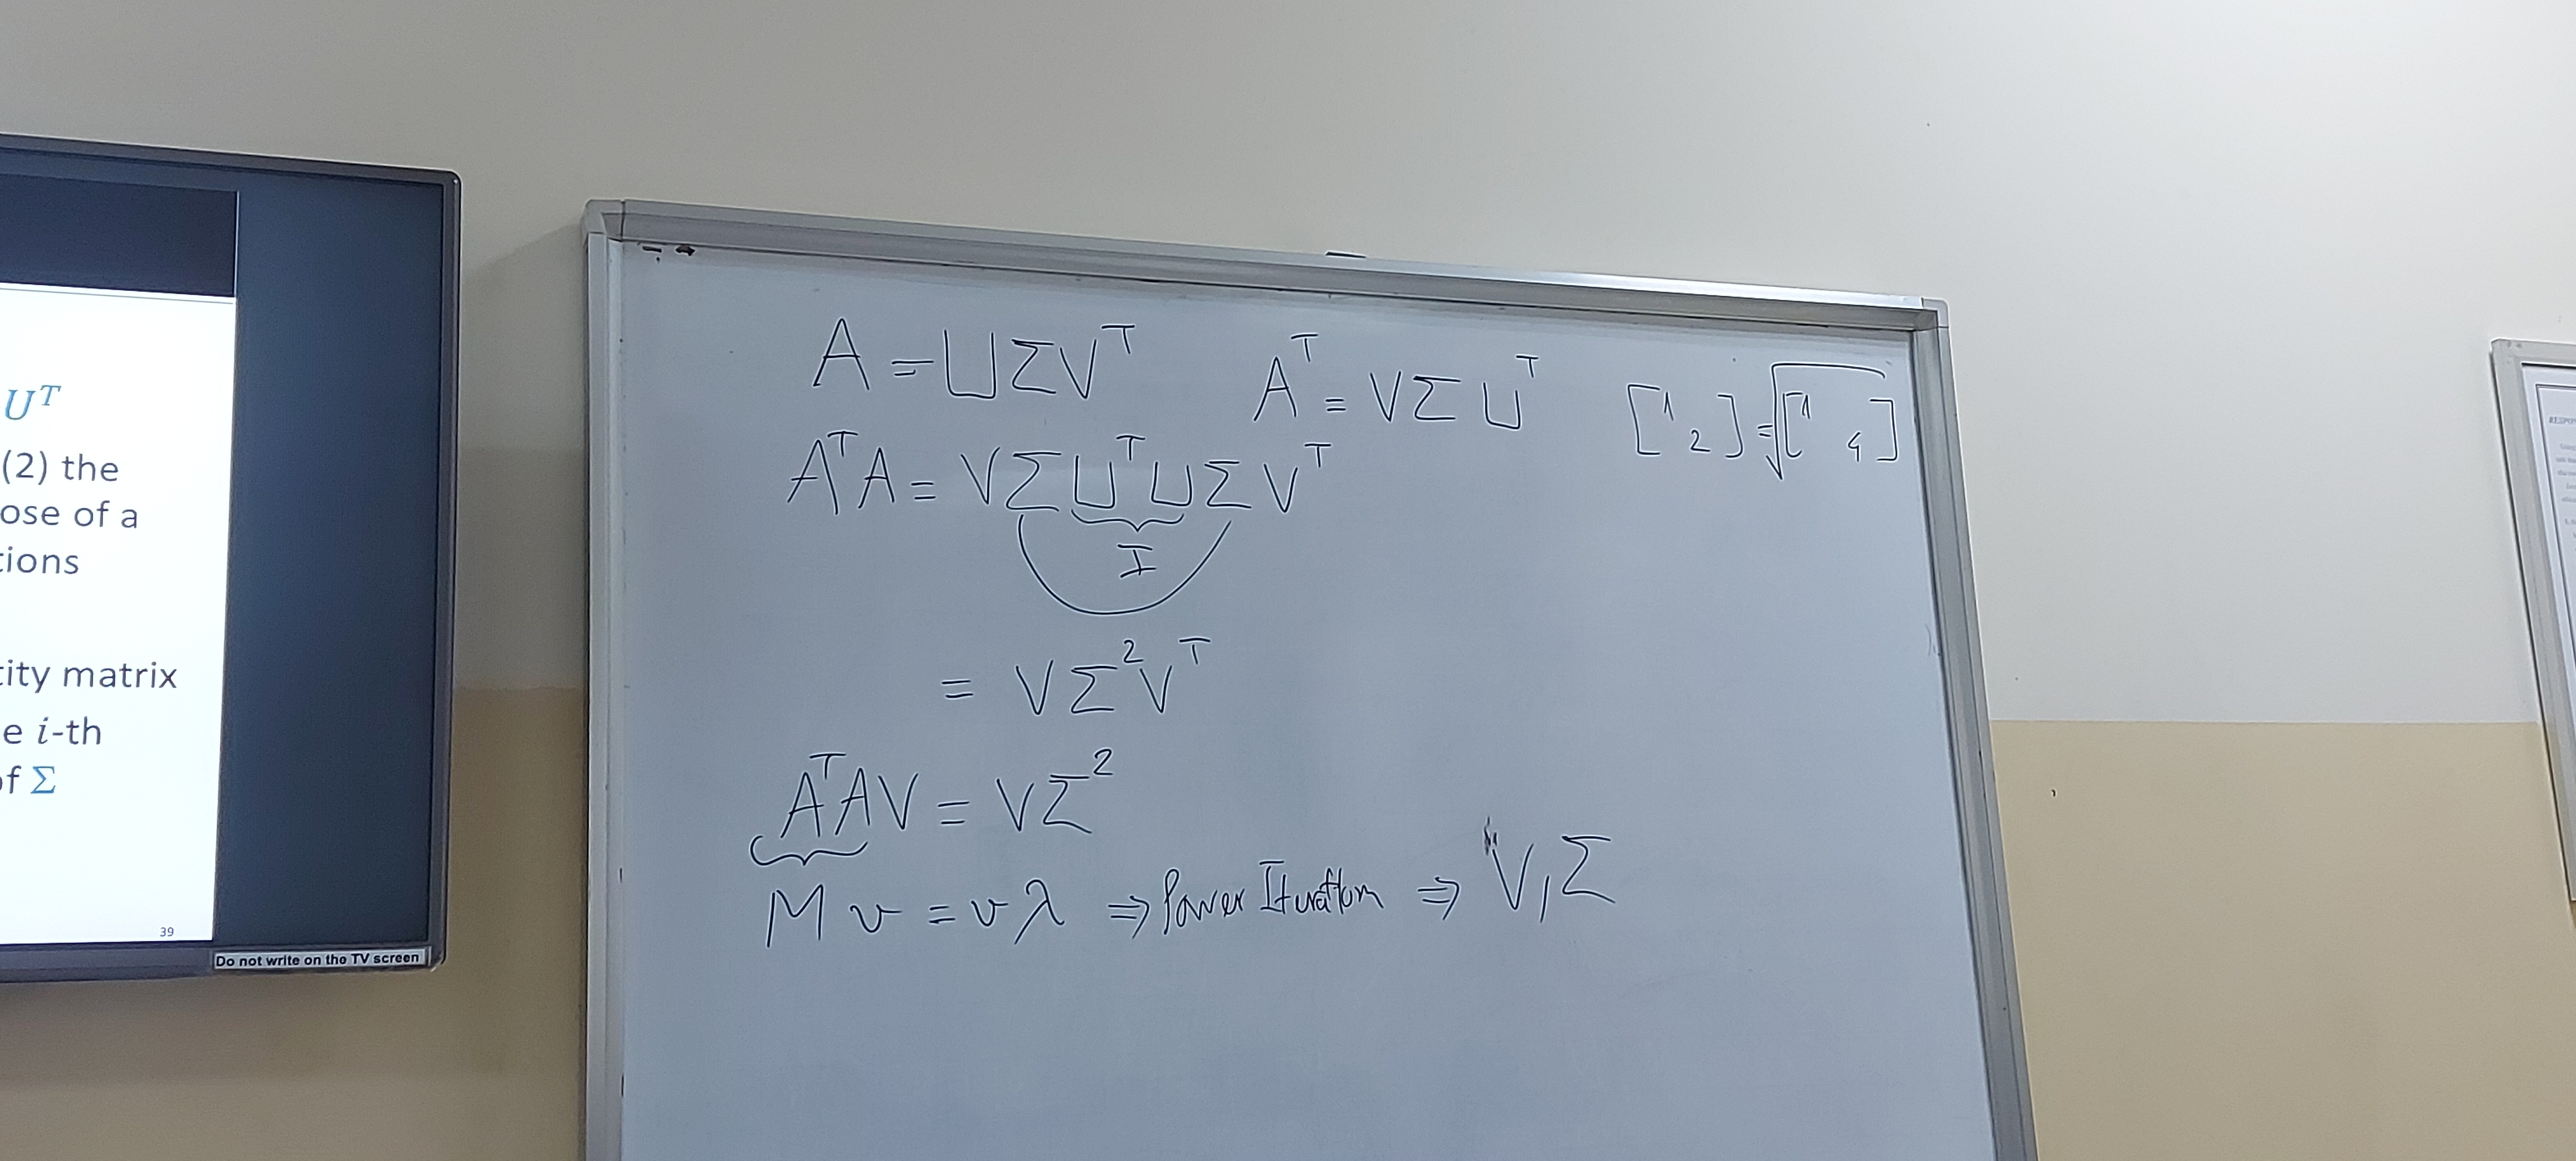 U^T
(2) the
ose of a
tions
tity matrix
e i-th
of Σ
39
Do not write on the TV screen
A = UΣV^T
A^T = VΣU^T
[1 2] = √[1 4]
A^T A = VΣU^T UΣV^T
I
= VΣ^2V^T
A^T A V = VΣ^2
M v = v λ ⇒ Power Iteration ⇒ V, Σ